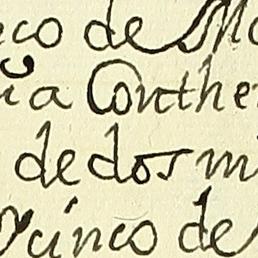 eco de M
ia Conthe
de dos mi
cinco de